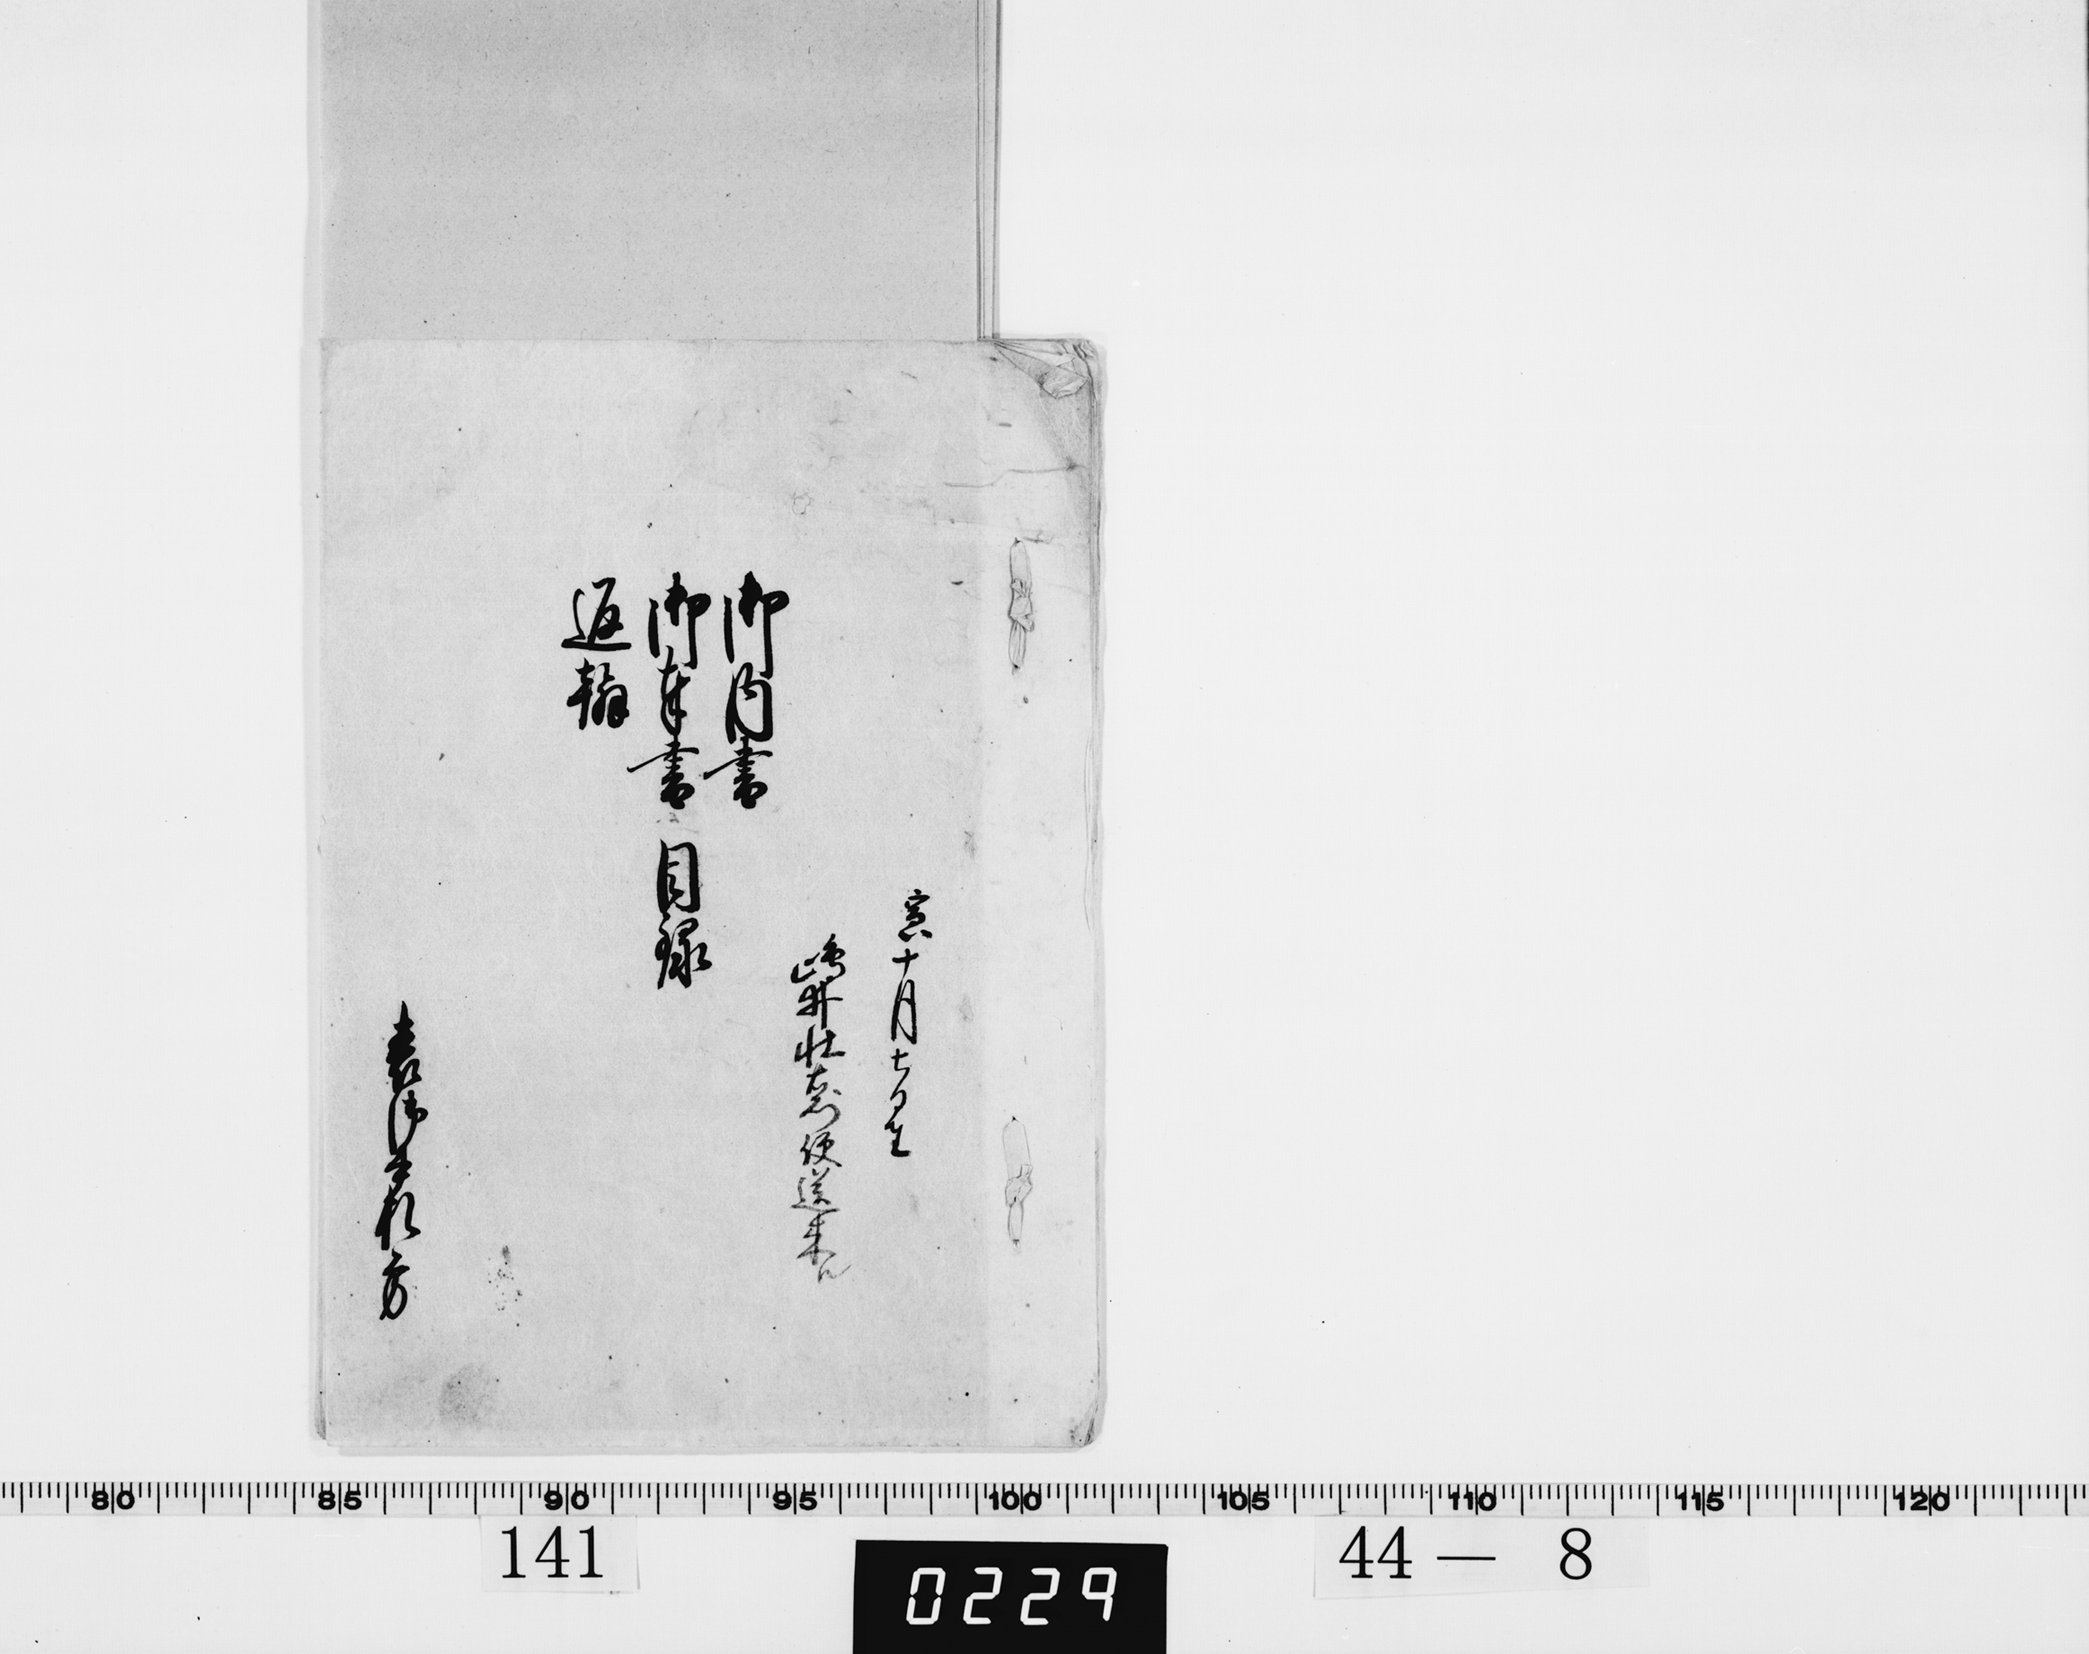 寅十月七日出
嶋井壮蔵便送来ル
御内書
御奉書 目録
返翰
表御書札方
80 85 90 95 100 105 110 115 120
141
0229
44— 8